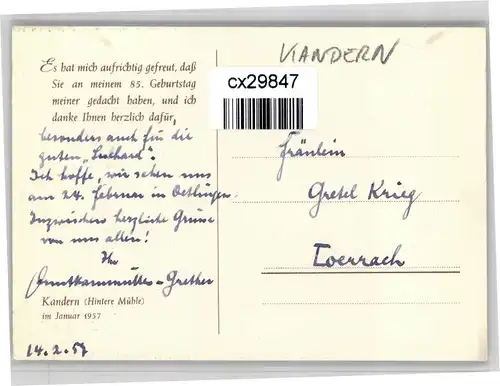 KANDERN
Es hat mich aufrichtig gefreut, daß
Sie an meinem 85. Geburtstag
meiner gedacht haben, und ich
danke Ihnen herzlich dafür,
besonders auch für die
guten
Ich hoffe, wir sehen uns
am 24. Februar in Oetlingen.
Inzwischen herzliche Grüsse
von uns allen!
Ihr
Grether
Kandern (Hintere Mühle)
im Januar 1957
14.2.57
cx29847
Fräulein
Gretel Krieg
Loerrach